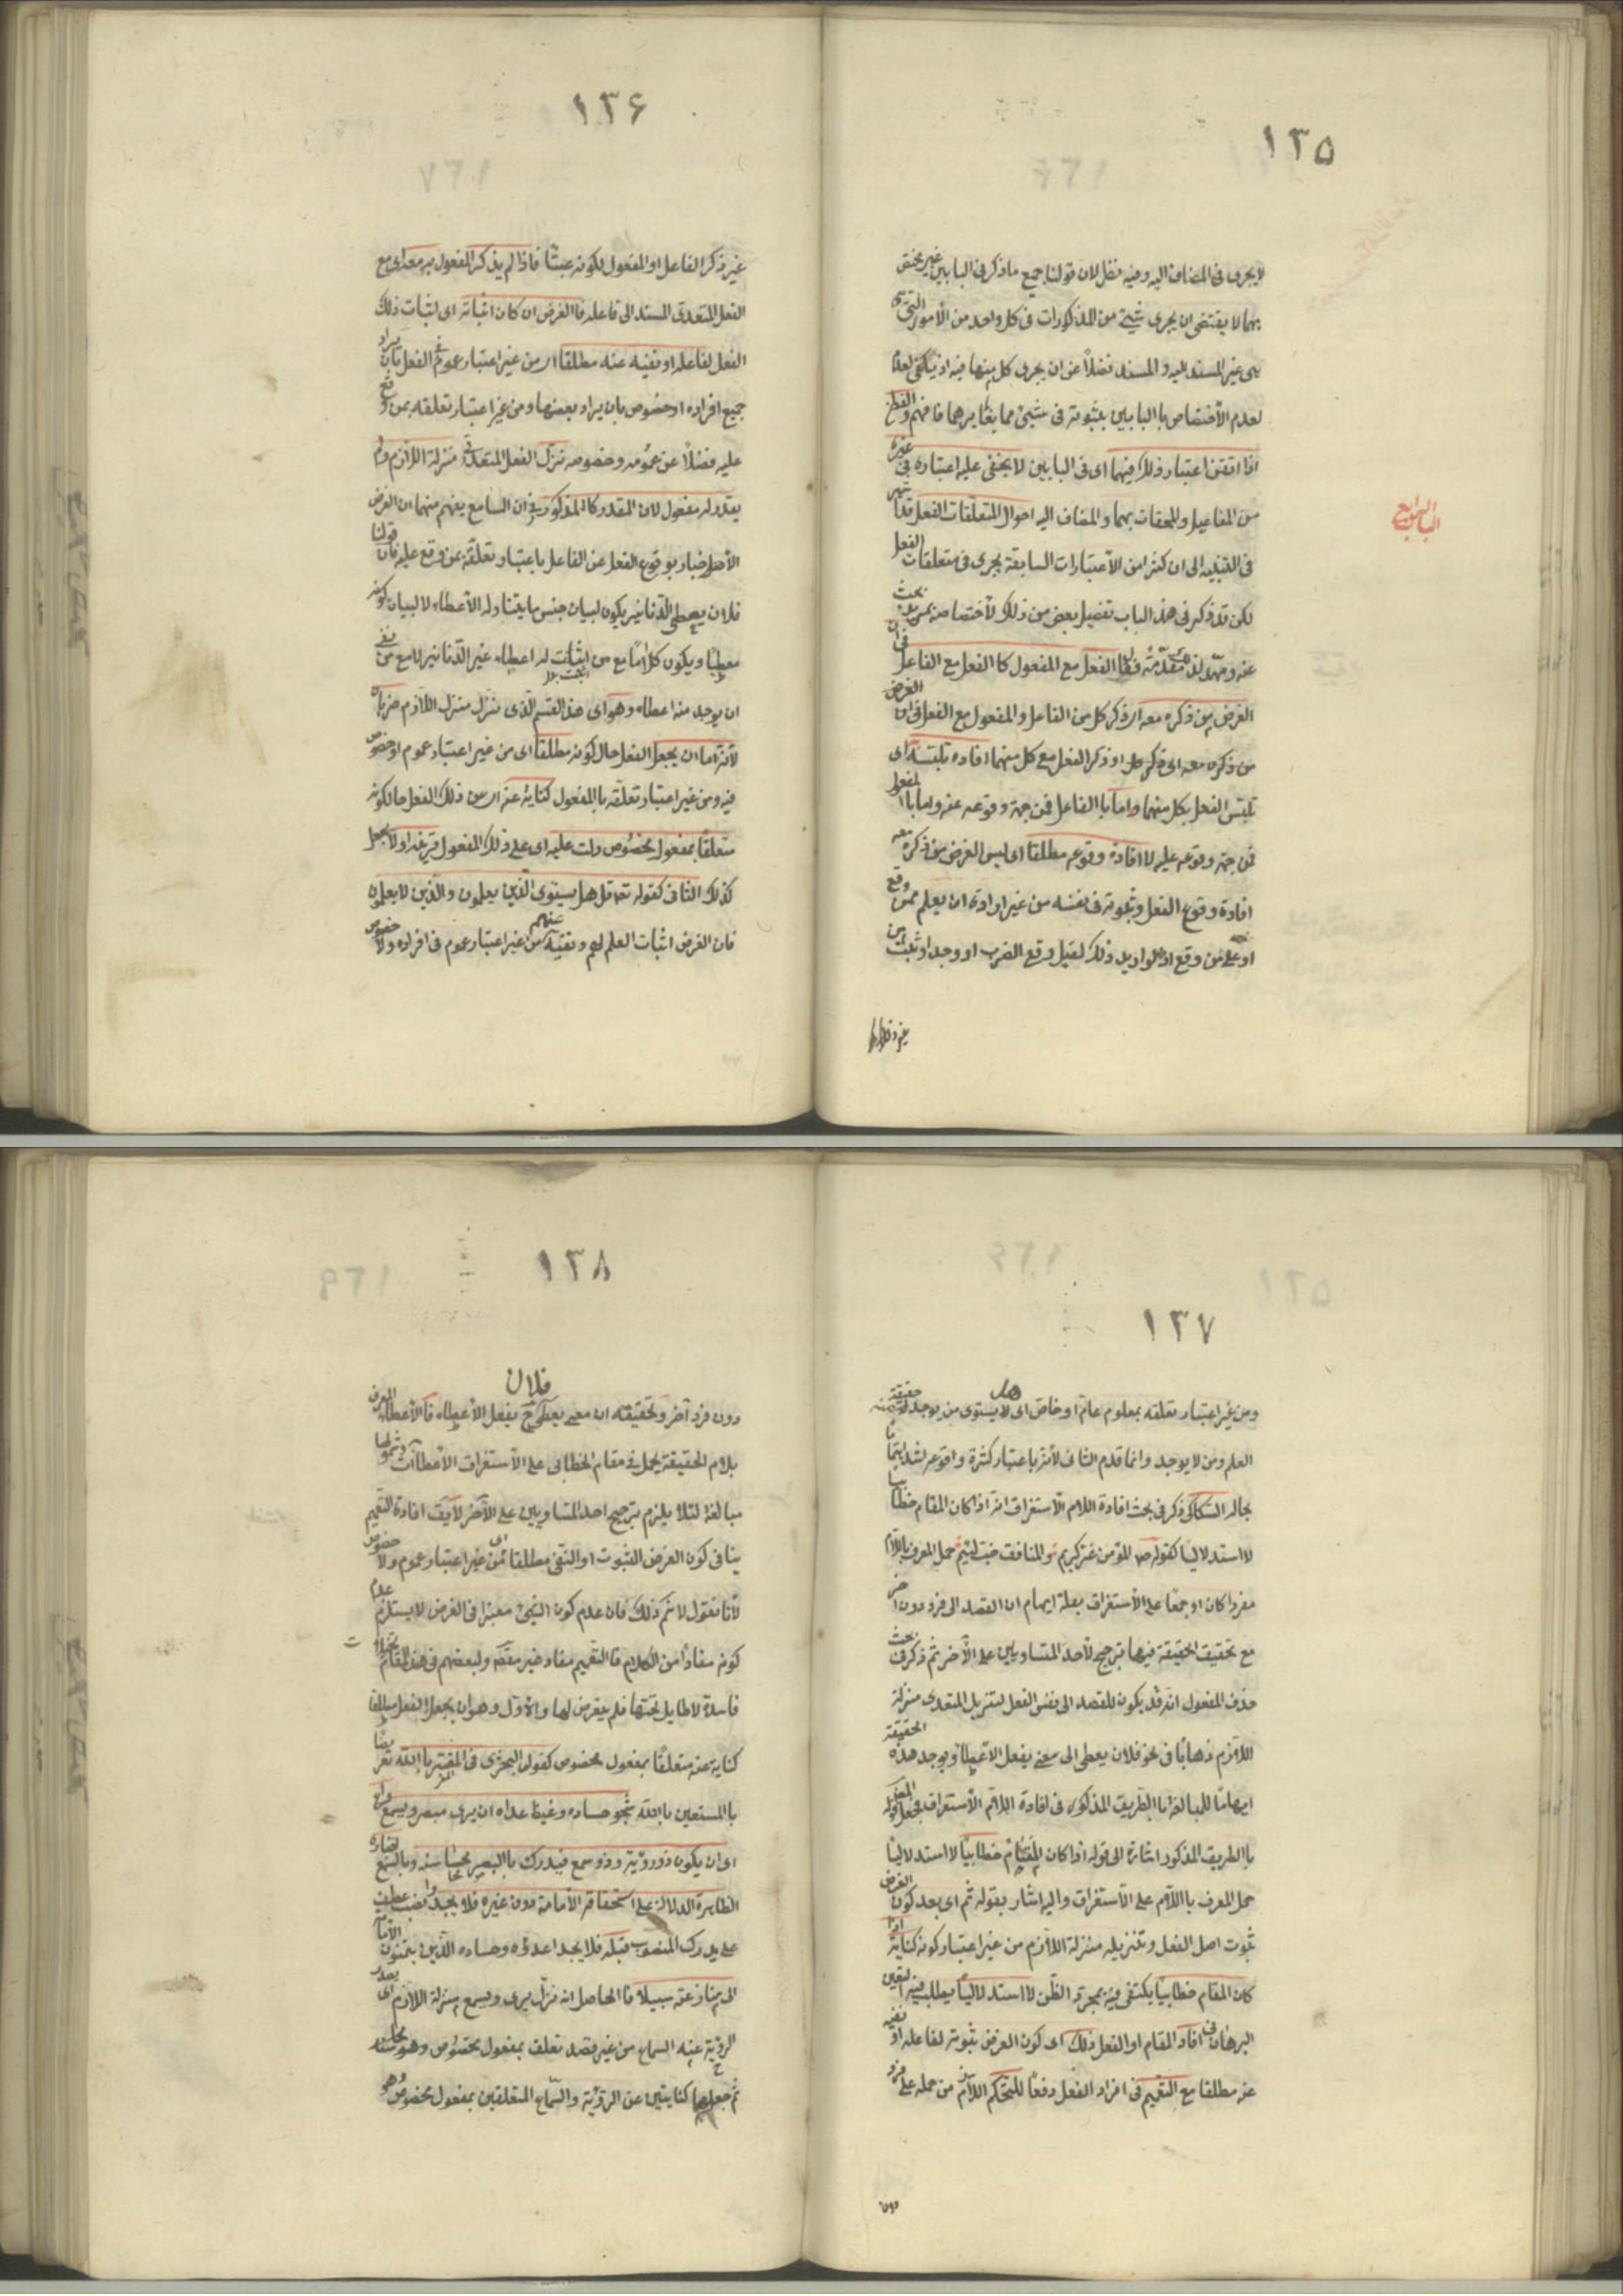 ١٣٥
لا يجرى فى المضاف اليه وفيه نظر لان قولنا جميع ما ذكر فى البابين غير مختص
بهما لا يقتضى ان يجرى شيئ من المذكورات فى كل واحد من الأمور التى
هى غير المسند اليه والمسند فضلاً عن ان يجرى كل منها فيه اذ يكفى لعدم
لعدم الأختصاص با البابين بثبوته فى شيئ مما يغايرهما فافهم والفطن
اذا اتقن اعتبار ذلك فيهما اى فى البابين لا يخفى عليه اعتباره فى غيرهما
من المفاعيل والملحقات بهما والمضاف اليه احوال المتعلقات الفعل قد اشير
الباب الرابع
فى التنبيه الى ان كثيرا من الأعتبارات السابقة يجرى فى متعلقات الفعل
لكن قد ذكر فى هذ الباب تفصيل بعض من ذلك لأختصاصه بمزيد بحث
عنه ومهّد لذلك مقدّمة فقال الفعل مع المفعول كا الفعل مع الفاعل فى ان
الغرض من ذكره معه اى ذكر كل من الفاعل والمفعول مع الفعل فى ان الغرض
من ذكره معه اى ذكر كل او ذكر الفعل مع كل منهما افاده تلبسه اى
تلبس الفعل بكل منهما واما با الفاعل فمن جهة وقوعه عنه واما با المفعول
فمن جهة وقوعه عليه لا افادة وقوعه مطلقا اى ليس الغرض من ذكره معه
افادة وقوع الفعل وثبوته فى نفسه من غير ارادة ان يعلم ممن وقع
او على من وقع اذ لو اريد ذلك لقيل وقع الضرب او وجد او ثبت من
غير ذكر
١٣٦
غير ذكر الفاعل او المفعول لكونه عبثا فاذا لم يذكر المفعول به معه اى مع
الفعل المتعدى المسند الى فاعله فا الغرض ان كان اثباته اى اثبات ذلك
الفعل لفاعله او نفيه عنه مطلقا اى من غير اعتبار عموم فى الفعل بان يراد
جميع افراده او خصوص بان يراد بعضها ومن غير اعتبار تعلقه بمن وقع
عليه فضلاً عن عمومه وخصوصه نزل الفعل المتعدى منزلة اللازم ولم
يقدر له مفعول لان المقدر كا المذكور فى ان السامع يفهم منهما ان الغرض
الأخبار بوقوع الفعل عن الفاعل باعتبار تعلقه بمن وقع عليه فان قولنا
فلان يعطى الدنانير يكون لبيان جنس ما يتناوله الأعطاء لا لبيان كونه
معطيًا ويكون كلامًا مع من اثبت له اعطاء غير الدنانير لا مع من نفى
ان يوجد منه اعطاء وهو اى هذ القسم الذى نزل منزل اللازم ضربان
لأنه اما ان يجعل الفعل حال كونه مطلقا اى من غير اعتبار عموم او خصوص
فيه ومن غير اعتبار تعلقه با المفعول كناية عنه اى من ذلك الفعل حال كونه
متعلقًا بمفعول مخصوص دلت عليه اى على ذلك المفعول قرينة او لا يجعل
كذلك الثانى كقوله تعه قل هل يستوى الذين يعلمون والذين لا يعلمون
فان الغرض اثبات العلم لهم ونفيه عنهم من غير اعتبار عموم فى افراده ولا خصوص
١٣٧
ومن غير اعتبار تعلقه بمعلوم عام او خاص اى هل لا يستوى من يوجد له حقيقة
العلم ومن لا يوجد وانما قدم الثانى لأنه باعتبار كثرة وقوعه اشد اهتماما
بحاله السكاكى ذكر فى بحث افادة اللام الأستغراق انه اذا كان المقام خطابيا
لا استدلاليا كقوله صم المؤمن غر كريم والمنافق خب لئيم حمل المعرف باللام
مفردا كان او جمعًا على الأستغراق بعلة ايهام ان القصد الى فرد دون اخر
مع تحقيق الحقيقة فيهما ترجيح لأحد المتساويين على الأخر ثم ذكر فى بحث
حذف المفعول انه قد يكون للقصد الى نفس الفعل لتنزيل المتعدى منزلة
اللازم ذهابًا فى نحو فلان يعطى الى معنى يفعل الأعطاء ويوجد هذه الحقيقة
ايهامًا للمبالغة با الطريق المذكور فى افادة اللام الأستغراق فجعل
با الطريق المذكور اشارة الى قوله اذا كان المقام خطابيًا لا استدلاليًا
حمل المعرف با اللام على الأستغراق واليه اشار بقوله ثم اى بعد كون الغرض
ثبوت اصل الفعل وتنزيله منزلة اللازم من غير اعتبار كونه كناية اذا
كان المقام خطابيًا يكتفى فيه بمجرد الظن لا استدلاليًا يطلب فيه اليقين
البرهانى افاد المقام او الفعل ذلك اى كون الغرض ثبوته لفاعله او نفيه
عنه مطلقا مع التعميم فى افراد الفعل دفعًا للتحكم اللازم من حمله على فرد
دون
١٣٨
دون فرد آخر وتحقيقه ان معنى فلان يعطى ح يفعل الأعطاء فا الأعطاء المعرف
بلام الحقيقة يحمل فى مقام الخطابى على الأستغراق الأعطاآت وشمولها
مبالغة لئلا يلزم ترجيح احد المتساويين على الأخر لا يقت افادة التعميم
ينافى كون الغرض الثبوت او النفى مطلقا اى من غير اعتبار عموم ولا خصوص
لأنا نقول لا نم ذلك فان عدم كون الشيئ معتبرا فى الغرض لا يستلزم عدم
كونه مفادا من الكلام فا التعميم مفاد غير مقصد ولبعضهم فى هذ المقام تخيلات
فاسدة لا طايل تحتها فلم يتعرض لها والأول وهو ان يجعل الفعل مطلقا
كناية عنه متعلقًا بمفعول مخصوص كقول البحترى فى المعتز با الله تعريضا
با المستعين با الله شجو حساده وغيظ عداه ان يرى مبصر ويسمع واع
اى ان يكون ذو رؤية وذو سمع فيدرك با البصر محاسنه وبا السمع اخباره
الظاهرة الدالة على استحقاقه الأمامة دون غيره فلا يجدوا نصب عطف
على يدرك المنصوب قبله فلا يجد اعدؤه وحساده الذين يتمنون الأمامة
الى منازعته سبيلا فا الحاصل انه نزل يرى ويسمع منزلة اللازم اى يصدر
الرؤية عنه السماع من غير قصد تعلق بمفعول مخصوص
ثم جعلهما كنايتين عن الرؤية والسماع المتعلقين بمفعول مخصوص هو